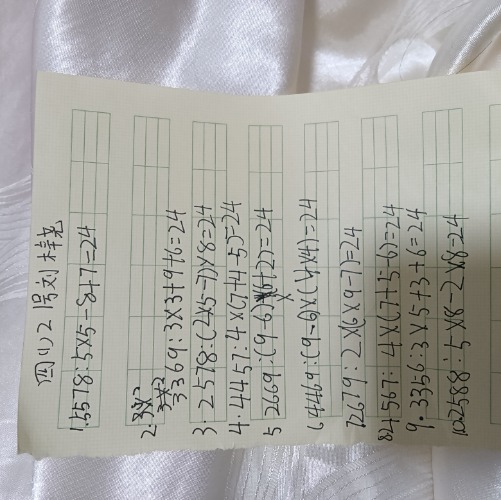 四(1)2号刘梓尧
1.5578:5×5-8+7=24
2.3369:3×3+9+6=24
3.2578:(2×5-7)×8=24
4.4457:4×(7+4-5)=24
5 2669:(9-6)×(6+2)=24
6 4469:(9-6)×(4+4)=24
7 2679:2×(6×9-7)=24
8 4567:4×(7+5-6)=24
9.3356:3×5+3+6=24
10.2588:5×8-2×8=24